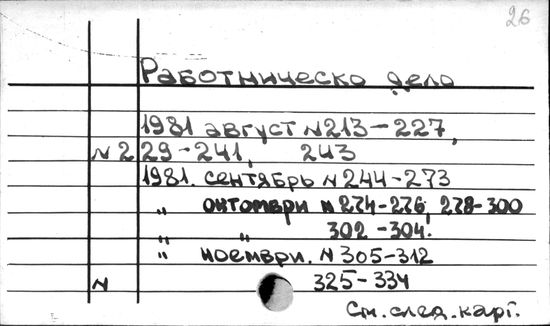 26
Работническо дело
1981 август N213-227,
N 229-241, 243
1981. сентябрь N244-273
„ октомври N 274-276, 278-300
„ „ 302-304.
„ ноември. N 305-312
N 325-334
См. след. карт.